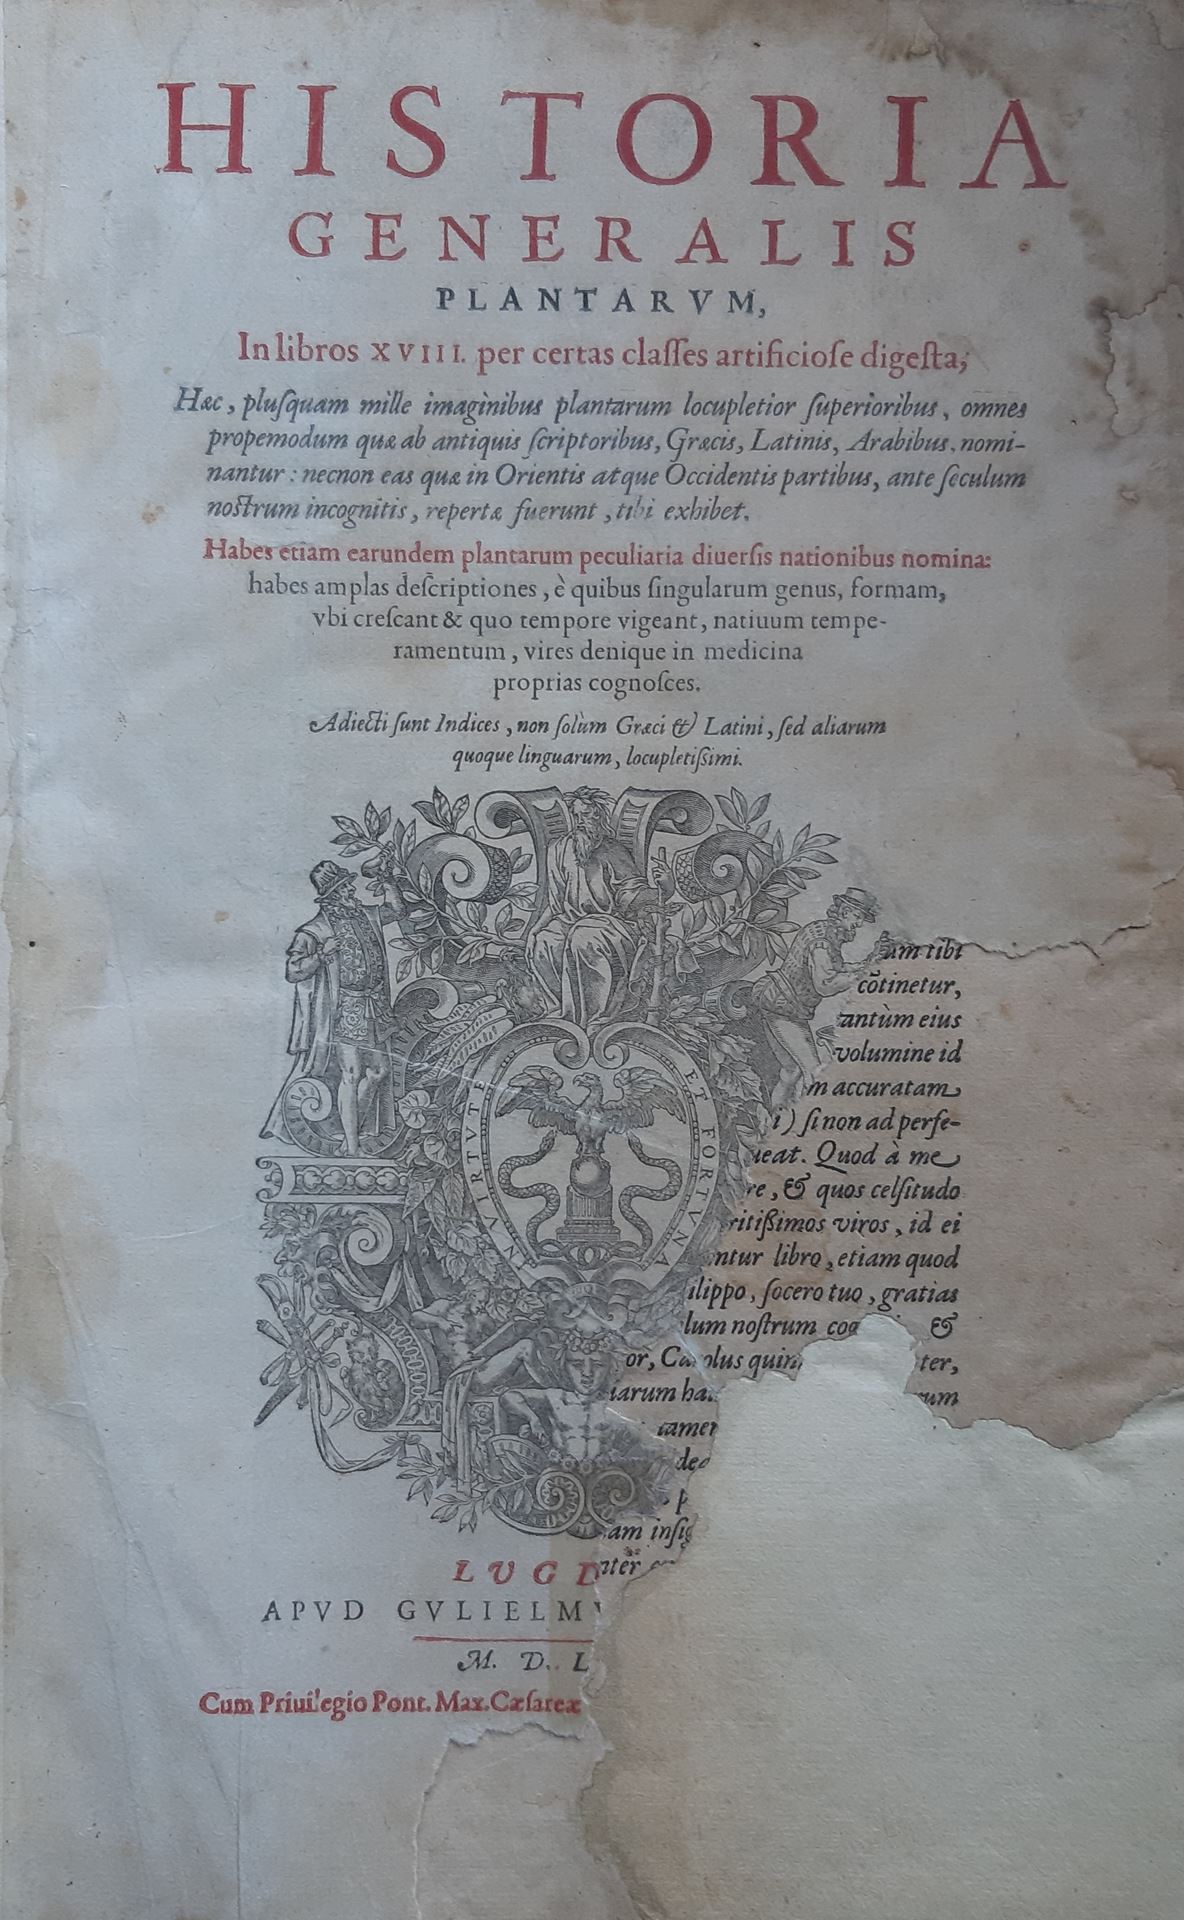 HISTORIA
GENERALIS
PLANTARVM,
In libros XVIII. per certas claſſes artificioſe digeſta,
Hæc, pluſquam mille imaginibus plantarum locupletior ſuperioribus, omnes
propemodum quæ ab antiquis ſcriptoribus, Græcis, Latinis, Arabibus, nomi-
nantur: necnon eas quæ in Orientis atque Occidentis partibus, ante ſeculum
noſtrum incognitis, repertæ fuerunt, tibi exhibet.
Habes etiam earundem plantarum peculiaria diuerſis nationibus nomina:
habes amplas deſcriptiones, è quibus ſingularum genus, formam,
vbi creſcant & quo tempore vigeant, natiuum tempe-
ramentum, vires denique in medicina
proprias cognoſces.
Adiecti ſunt Indices, non ſolùm Græci & Latini, ſed aliarum
quoque linguarum, locupletiſsimi.
VIRTVTE ET FORTVNA
um tibi
cõtinetur,
antùm eius
volumine id
m accuratam
i) ſi non ad perfe-
ueat. Quod à me
re, & quos celſitudo
ritiſsimos viros, id ei
ntur libro, etiam quod
ilippo, ſocero tuo, gratias
lum noſtrum &
or, Carolus quin ter,
iarum ha um
tamen
deo
p
am inſig
LVGD
APVD GVLIELMV
M. D. L
Cum Priuilegio Pont. Max. Cæſareæ